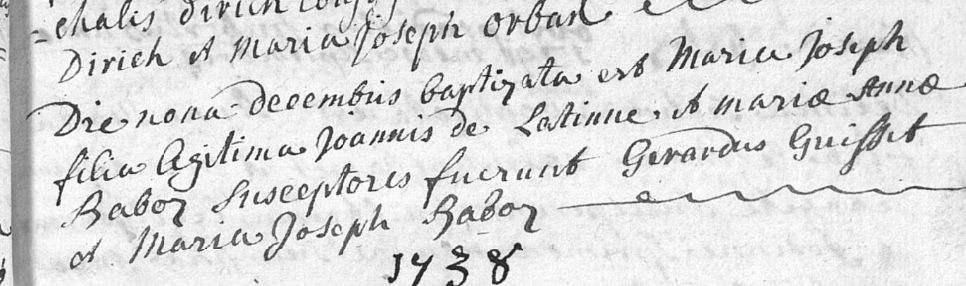 =chalis dirich
Dirich et Maria Joseph Orban
Die nona decembris baptizata est Maria Joseph
filia legitima Joannis de Latinne, et mariæ Annæ
Baboz susceptores fuerunt Gerardus Guisset
et Maria Joseph Baboz
1738